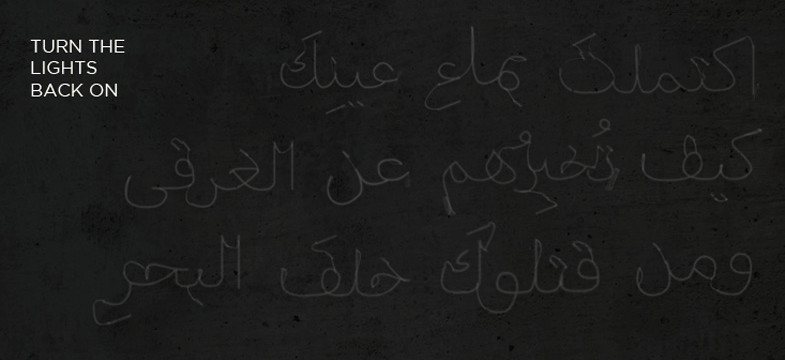 TURN THE
LIGHTS
BACK ON
اكتملتَ بماءِ عينِكَ
كيف تُخبِرُهم عن الغرقى
ومن قتلوكَ خلفَ البحرِ